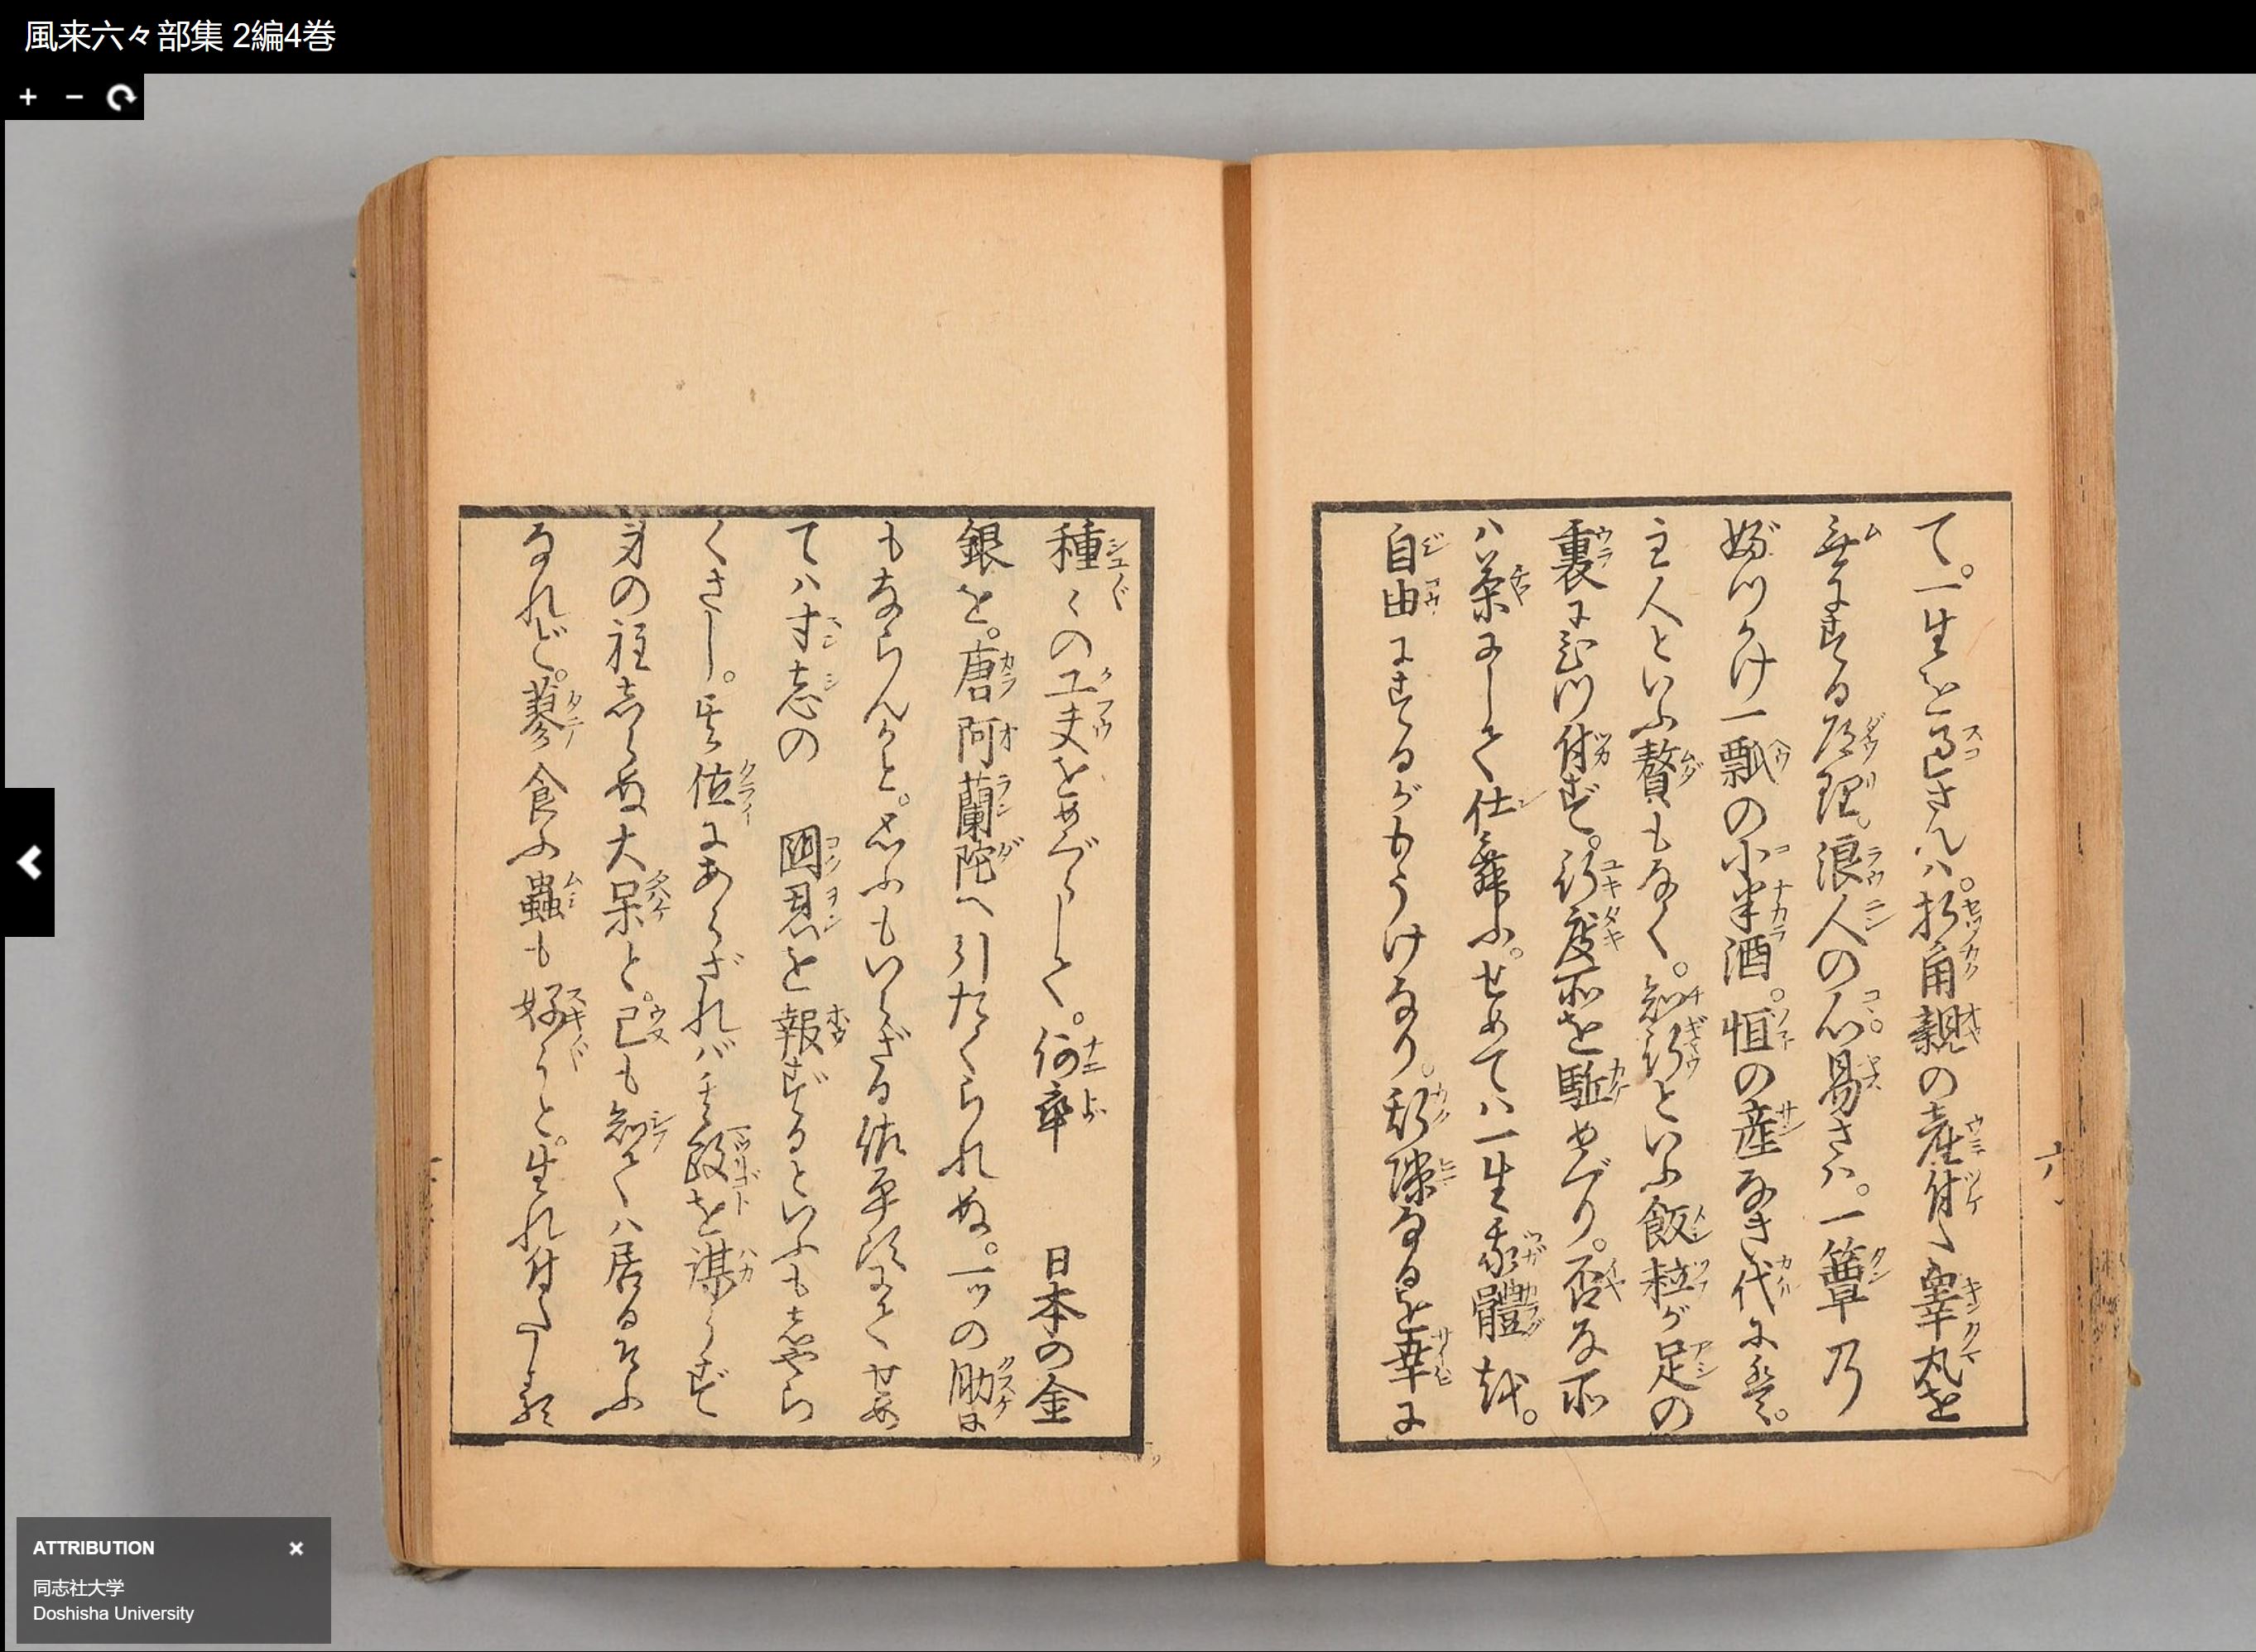 風来六々部集 2編4巻
て。一生を過さんハ。折角親の産付た睾丸を
無にする道理。浪人の心易さハ。一簞乃
ぶつかけ一瓢の小半酒。恒の産なき代に主。
主人といふ贅もなく。知行といふ飯粒が足の
裏に引付ず。行度所を駈めぐり。否な所
ハ茶にして仕舞ふ。せめてハ一生我體を。
自由にするがもうけなり。斯隙なるを幸に
種々の工夫をめぐらして。何卒 日本の金
銀を。唐阿蘭陀へ引たくられぬ。一ツの助に
もならんかと。思ふもいらざる佐平次にてせめ
てハ寸志の 國恩を報ずるといふもしやら
くさし。其位にあらざれバ其政を謀らず
身の程しらぬ大呆と。己も知てハ居るそふ
なれど。蓼食ふ蟲も好々と。生れ付たる
六
ATTRIBUTION
同志社大学
Doshisha University